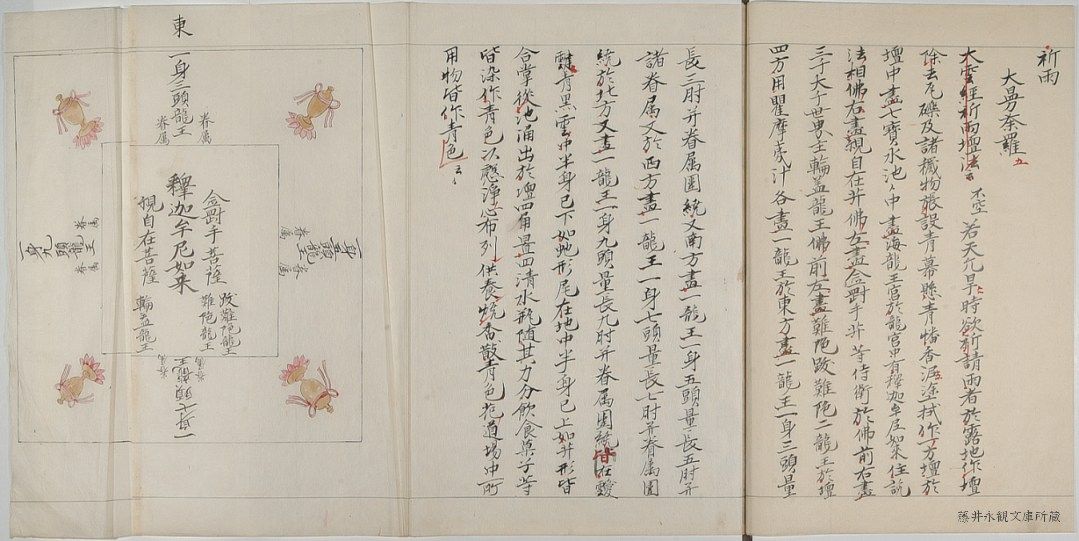 祈雨
大曼荼羅
大雲經祈雨壇法云 不空 若天亢旱時欲祈請雨者於露地作壇
除去瓦礫及諸穢物張設青幕懸青幡香泥塗拭作一方壇於
壇中畫七寶水池池中畫海龍王宮於龍宮中有釋迦牟尼如來住說
法相佛右畫觀自在菩薩佛左畫金剛手菩薩等侍衛於佛前右畫
三千大千世界主輪盖龍王佛前左畫難陁跋難陁二龍王於壇
四方用瞿摩夷汁各畫一龍王於東方畫一龍王一身三頭量
長三肘并眷属圍繞又南方畫一龍王一身五頭量長五肘并
諸眷属又於西方畫一龍王一身七頭量長七肘并眷属圍
繞於北方又畫一龍王一身九頭量長九肘并眷属圍繞皆在靉
靆青黑雲中半身已下如蛇形尾在地中半身已上如菩薩形皆
合掌從池涌出於壇四角置四清水瓶随其力分飲食菓子等
皆染作青色以慇淨心布列供養燒香散青色花道場中所
用物皆作青色云々
東
一身三頭龍王
眷属
眷属
金剛手菩薩
釋迦牟尼如來
觀自在菩薩
跋難陁龍王
難陁龍王
輪盖龍王
一身五頭龍王
眷属
眷属
一身七頭龍王
眷属
眷属
一身九頭龍王
眷属
眷属
藤井永観文庫所蔵